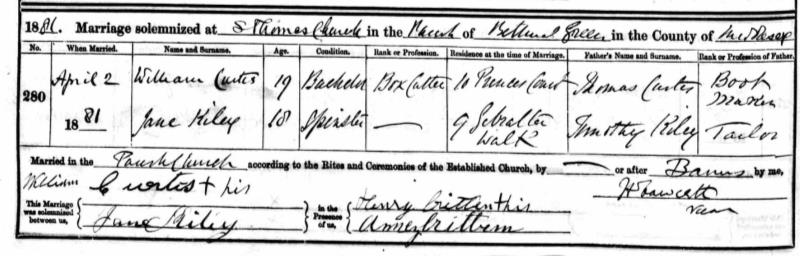 1881. Marriage solemnized at St Thomas Church in the Parish of Bethnal Green in the County of Middlesex
No. When Married. Name and Surname. Age. Condition. Rank or Profession. Residence at the time of Marriage. Father's Name and Surname. Rank or Profession of Father.
280 April 2 1881 William Curtis 19 Bachelor Box Cutter 10 Princes Court Thomas Curtis Boot Maker
Jane Riley 18 Spinster — 9 Gibralter Walk Timothy Riley Tailor
Married in the Parish Church according to the Rites and Ceremonies of the Established Church, by — or after Banns by me,
William Curtis + his
This Marriage was solemnized between us, Jane Riley
in the Presence of us, Henry Crittenthis
Crittern